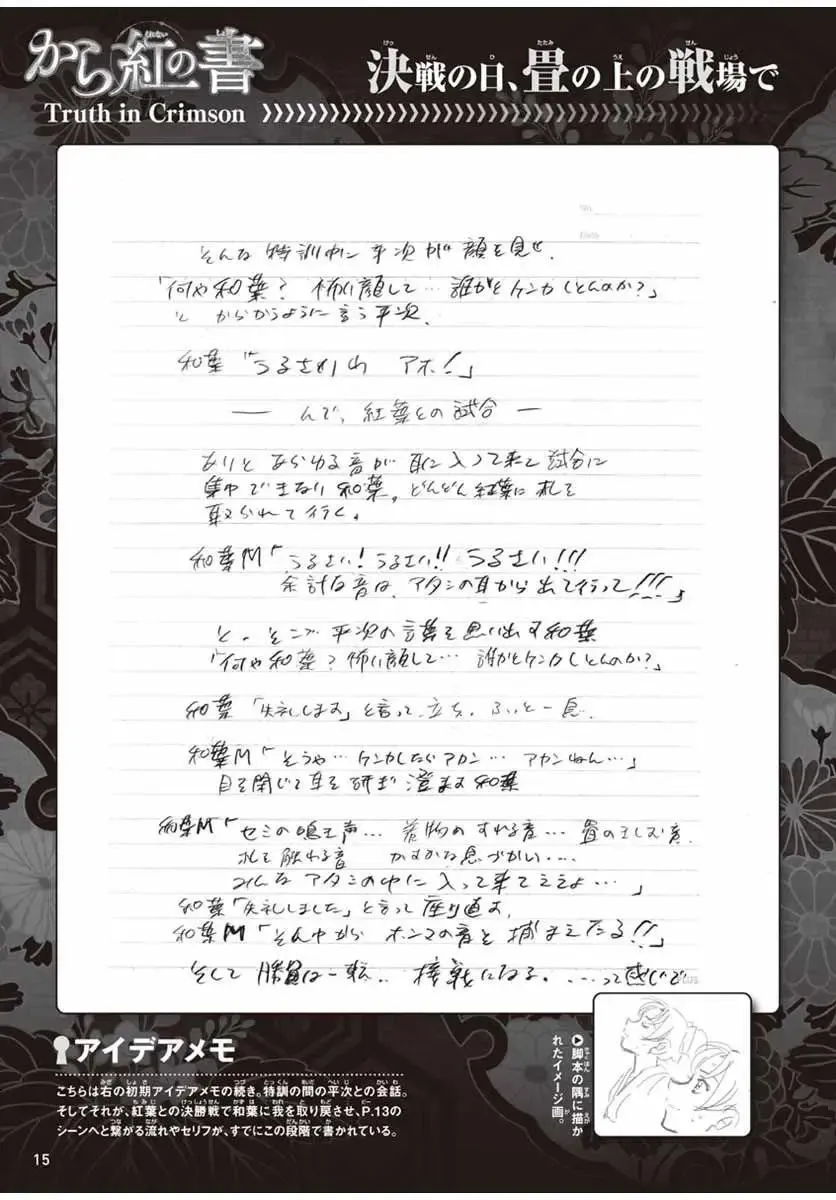 から紅の書
Truth in Crimson
決戦の日、畳の上の戦場で
そんな特訓中に平次が顔を見せ、
「何や和葉? 怖い顔して… 誰かとケンカしとんのか?」
と からかうように言う平次、
和葉「うるさいわ アホ!」
― んで、紅葉との試合 ―
ありと あらゆる音が 耳に入って来て 試合に
集中できない和葉。どんどん紅葉に札を
取られて行く。
和葉M「うるさい! うるさい!! うるさい!!!
余計な音は、アタシの耳から出て行って!!!」
と、そこで 平次の言葉を思い出す和葉
「何や和葉? 怖い顔して… 誰かとケンカしとんのか?」
和葉「失礼します」と言って立ち、ふぅと一息、
和葉M「そうや… ケンカしたらアカン… アカンねん…」
目を閉じて耳を研ぎ澄ます和葉
和葉M「セミの鳴き声… 着物のすれる音… 畳のきしむ音
札を触わる音 かすかな息づかい‥‥
みんなアタシの中に入って来てええよ…」
和葉「失礼しました」と言って座り直す、
和葉M「そん中から ホンマの音を 捕まえたる!!」
そして勝負は一転‥ 接戦になる、…って感じで
アイデアメモ
こちらは右の初期アイデアメモの続き。特訓の間の平次との会話。
そしてそれが、紅葉との決勝戦で和葉に我を取り戻させ、P.13の
シーンへと繋がる流れやセリフが、すでにこの段階で書かれている。
▶脚本の隅に描か
れたイメージ画。
15